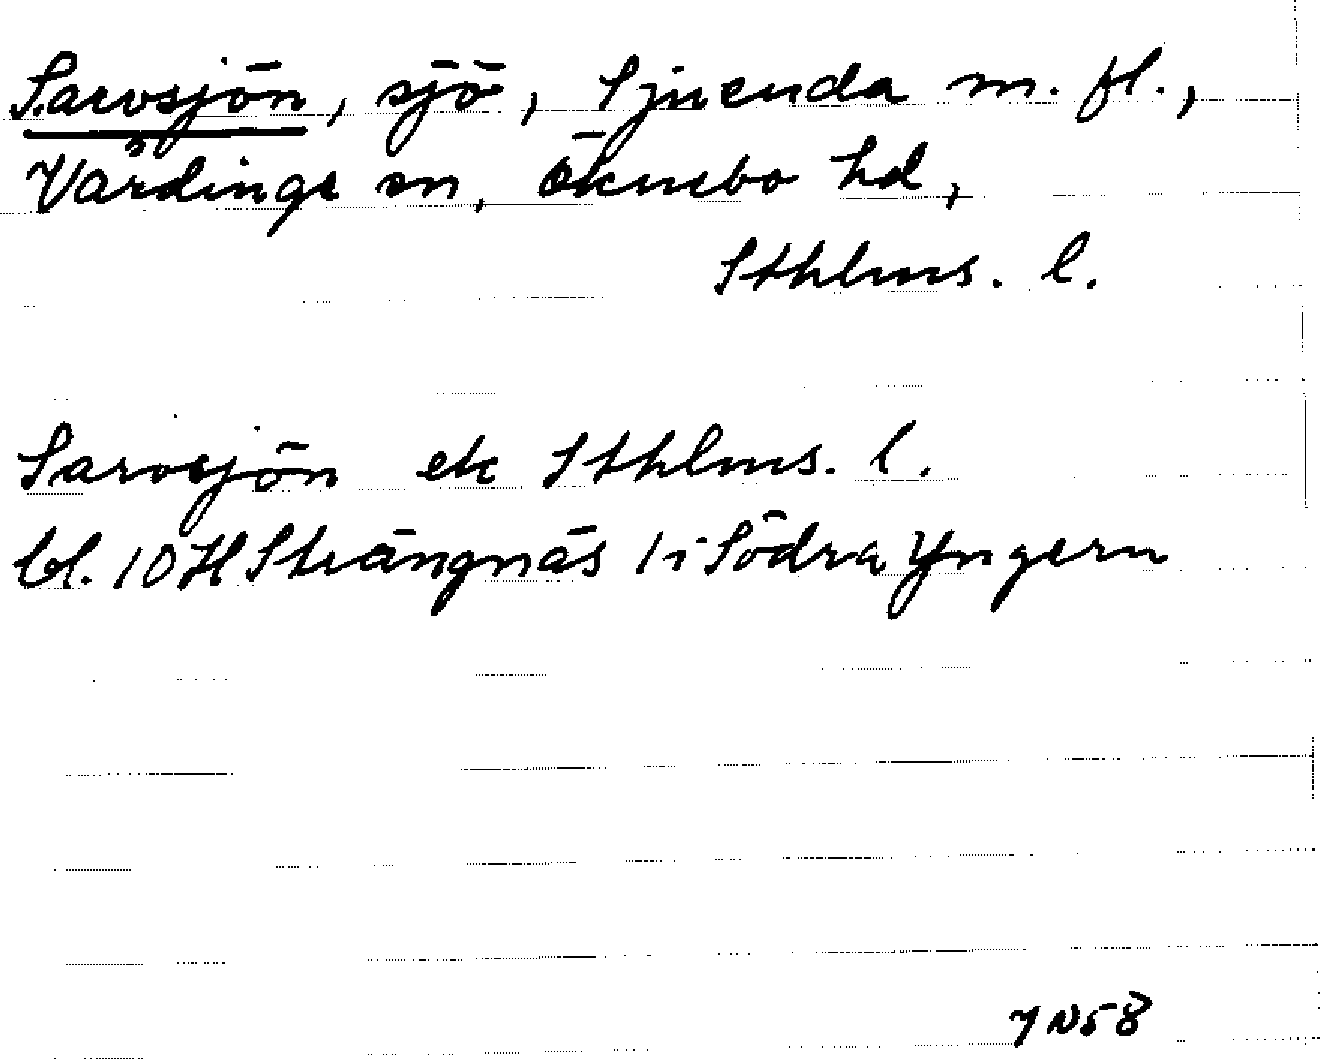 Sarvsjön, sjö, Sjuenda m. fl.,
Vårdinge sn, Öknebo hd,
Sthlms. l.
Sarvsjön ek Sthlms. l.
bl. 10 H Strängnäs 1i Södra Yngern
YN58